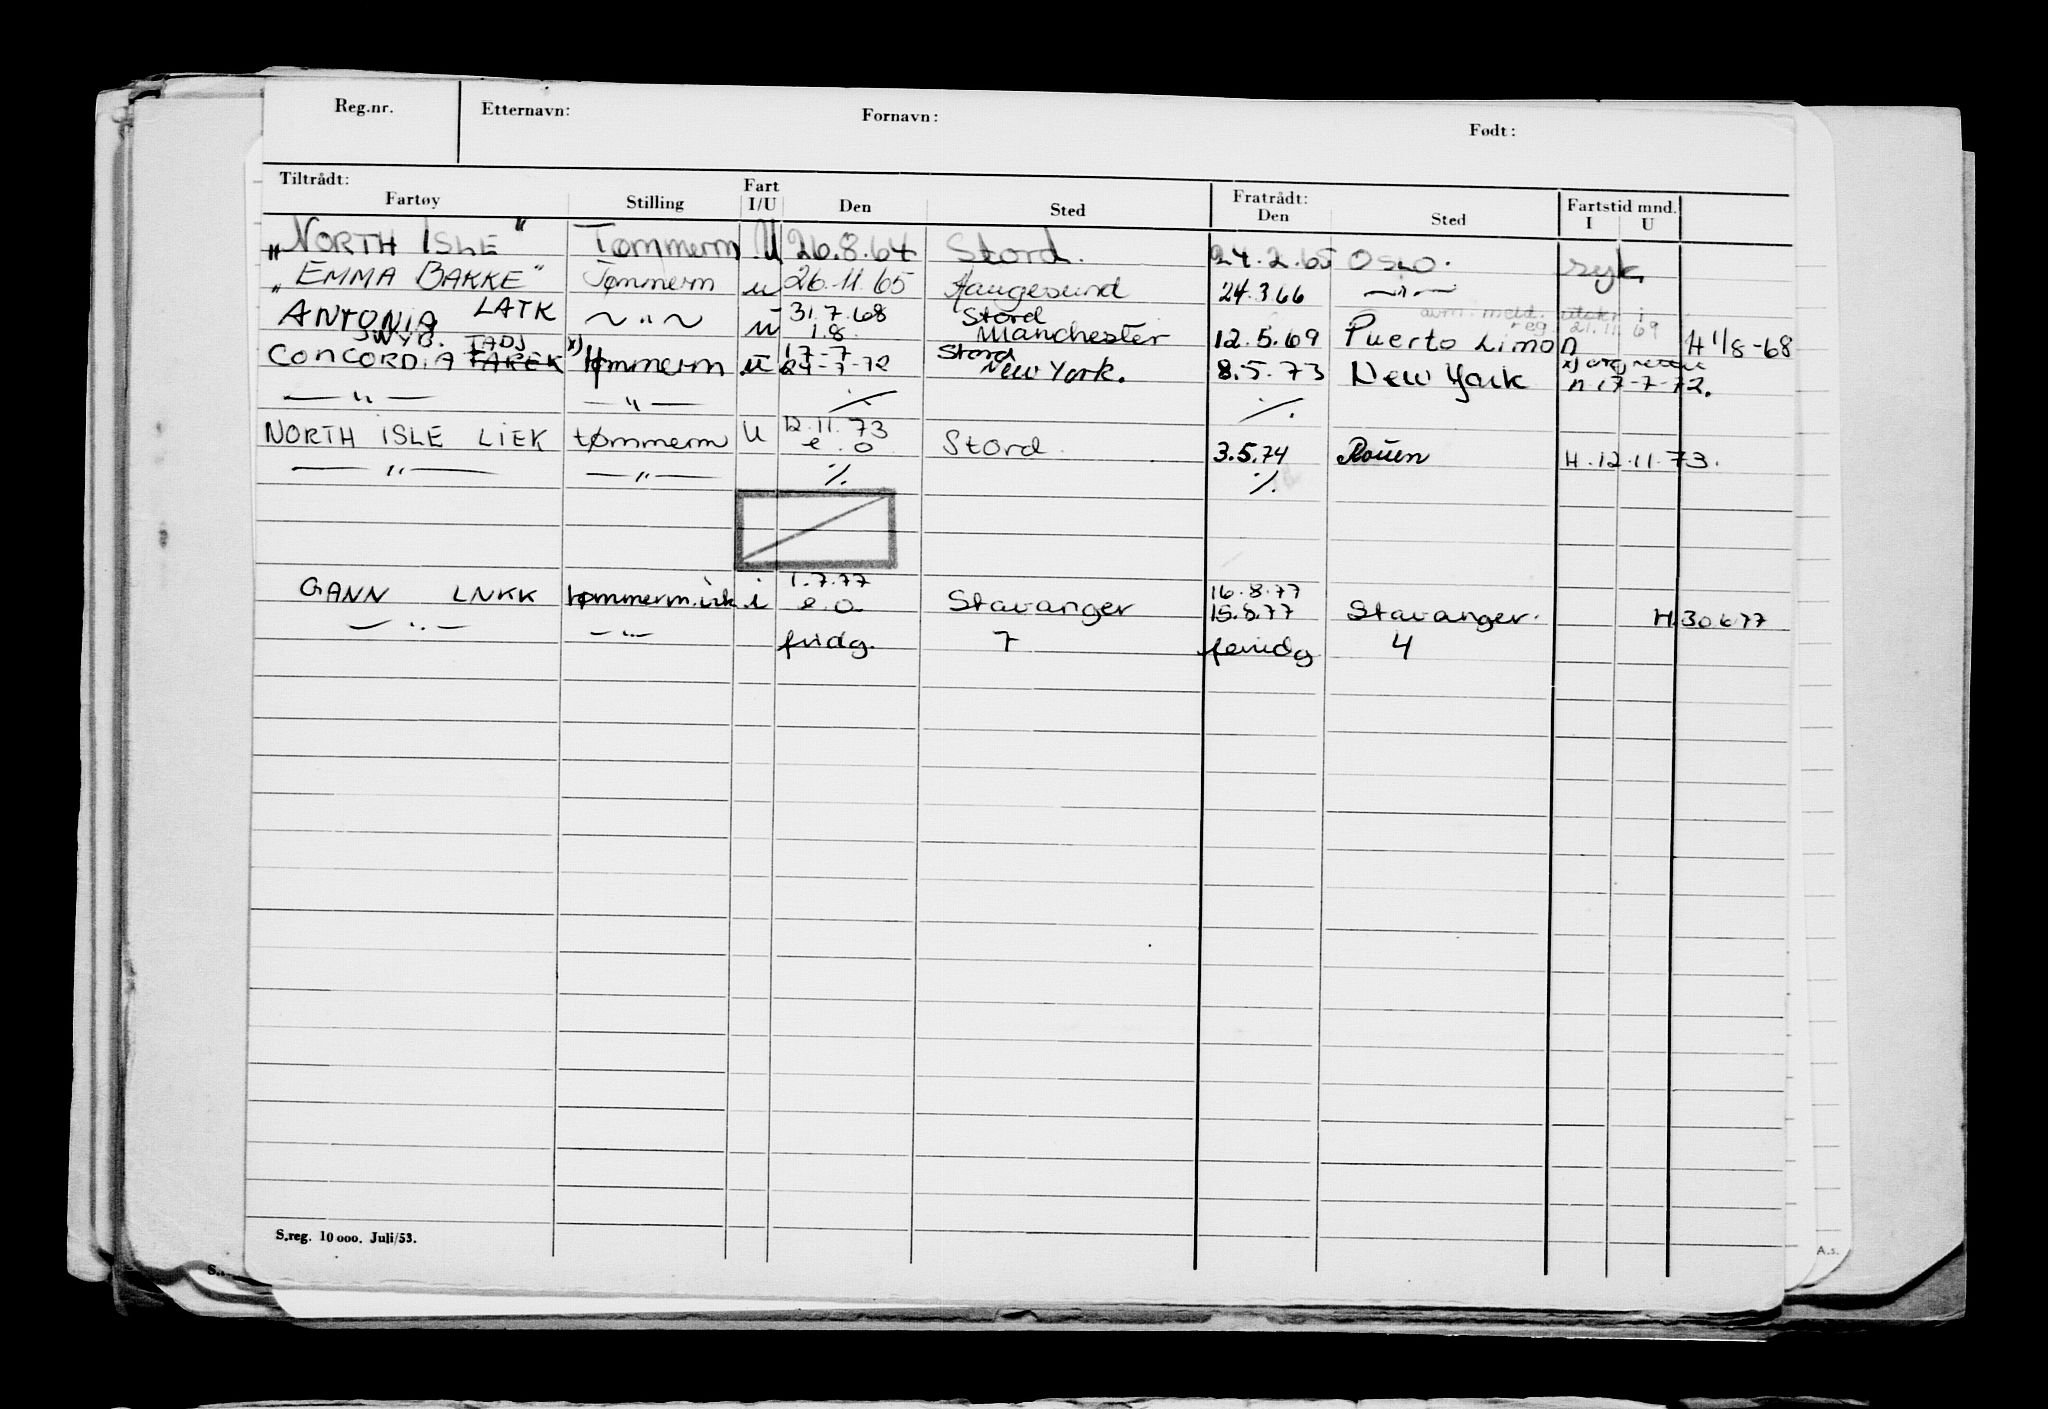 Reg.nr. Etternavn: Fornavn: Født:
Tiltrådt: Fart Fratrådt: Fartstid mnd.
Fartøy Stilling I/U Den Sted Den Sted I U
„NORTH ISLE" Tømmerm U 26.8.64 Stord. 24.2.65 OSLO. syk
„EMMA BAKKE" Tømmerm u 26.11.65 Haugesund 24.3.66 —„—
31.7.68 Stord avm. meld. utskr i
ANTONIA LATK ~ " ~ u 1.8. Manchester 12.5.69 Puerto Limon reg. 21.11.69 H 1/8-68
JADJ x) 17-7 Stord
CONCORDIA FAREK tømmerm u 24-7-72 New York. 8.5.73 New York n 17-7-72.
— " — — " — ·/. ·/.
12.11.73
NORTH ISLE LIEK tømmerm U e.o Stord 3.5.74 Rouen H.12.11.73.
— " — — " — ·/. ·/.
1.7.77 16.8.77
GANN LNKK tømmerm. i e.o Stavanger 15.8.77 Stavanger. H.30.6.77
— " — — " — fridg. 7 feridg 4
S.reg. 10 000. Juli/53.
A.s.